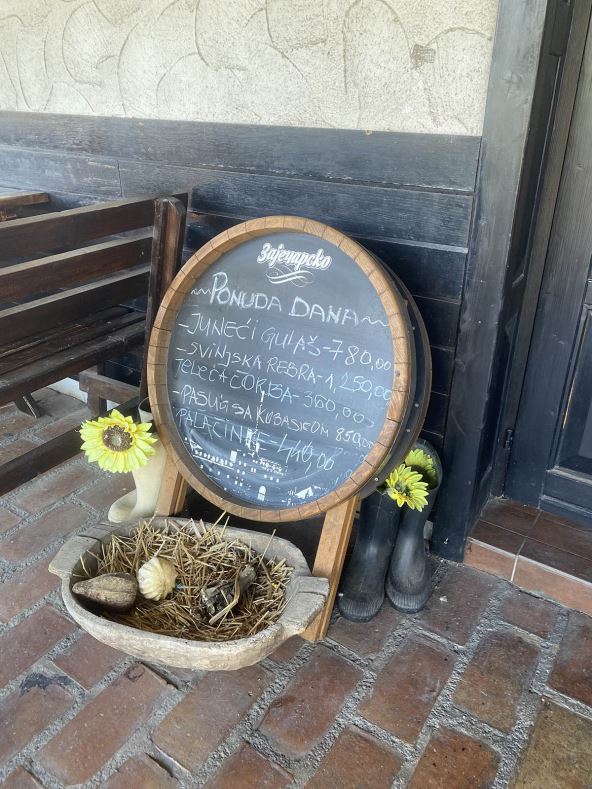 Зајечарско
~PONUDA DANA~
-JUNEĆI GULAŠ-780,00
-SVINJSKA REBRA-1,250,00
TELEĆA ČORBA-360,00
-PASULJ SA KOBASICOM 850,00
-PALAČINKE-440,00